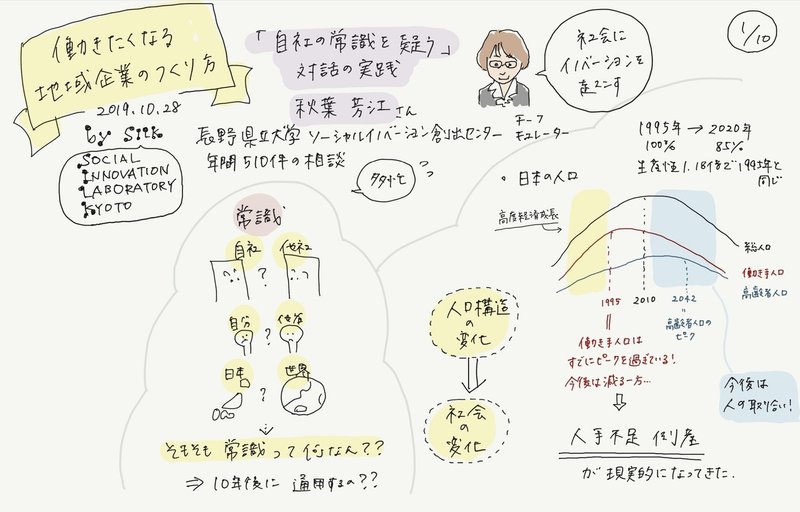 働きたくなる
地域企業のつくり方
2019.10.28
by SILK
SOCIAL
INNOVATION
LABORATORY
KYOTO
「自社の常識を疑う」
対話の実践
秋葉 芳江さん
長野県立大学 ソーシャルイノベーション創出センター
チーフ
キュレーター
年間510件の相談
社会に
イノベーションを
起こす
1/10
1995年 → 2020年
100% 85%
生産性1.18倍で1995年と
同じ
常識
自社 他社
?
自分 他者
?
日本 世界
?
そもそも 常識って何なん??
⇒ 10年後に 通用するの??
人口構造
の
変化
社会
の
変化
・日本の人口
高度経済成長
総人口
働き手人口
高齢者人口
1995 2010 2042
働き手人口は
すでにピークを過ぎている!
今後は減る一方…
高齢者人口の
ピーク
今後は
人の取り合い!
人手不足 倒産
が現実的になってきた.